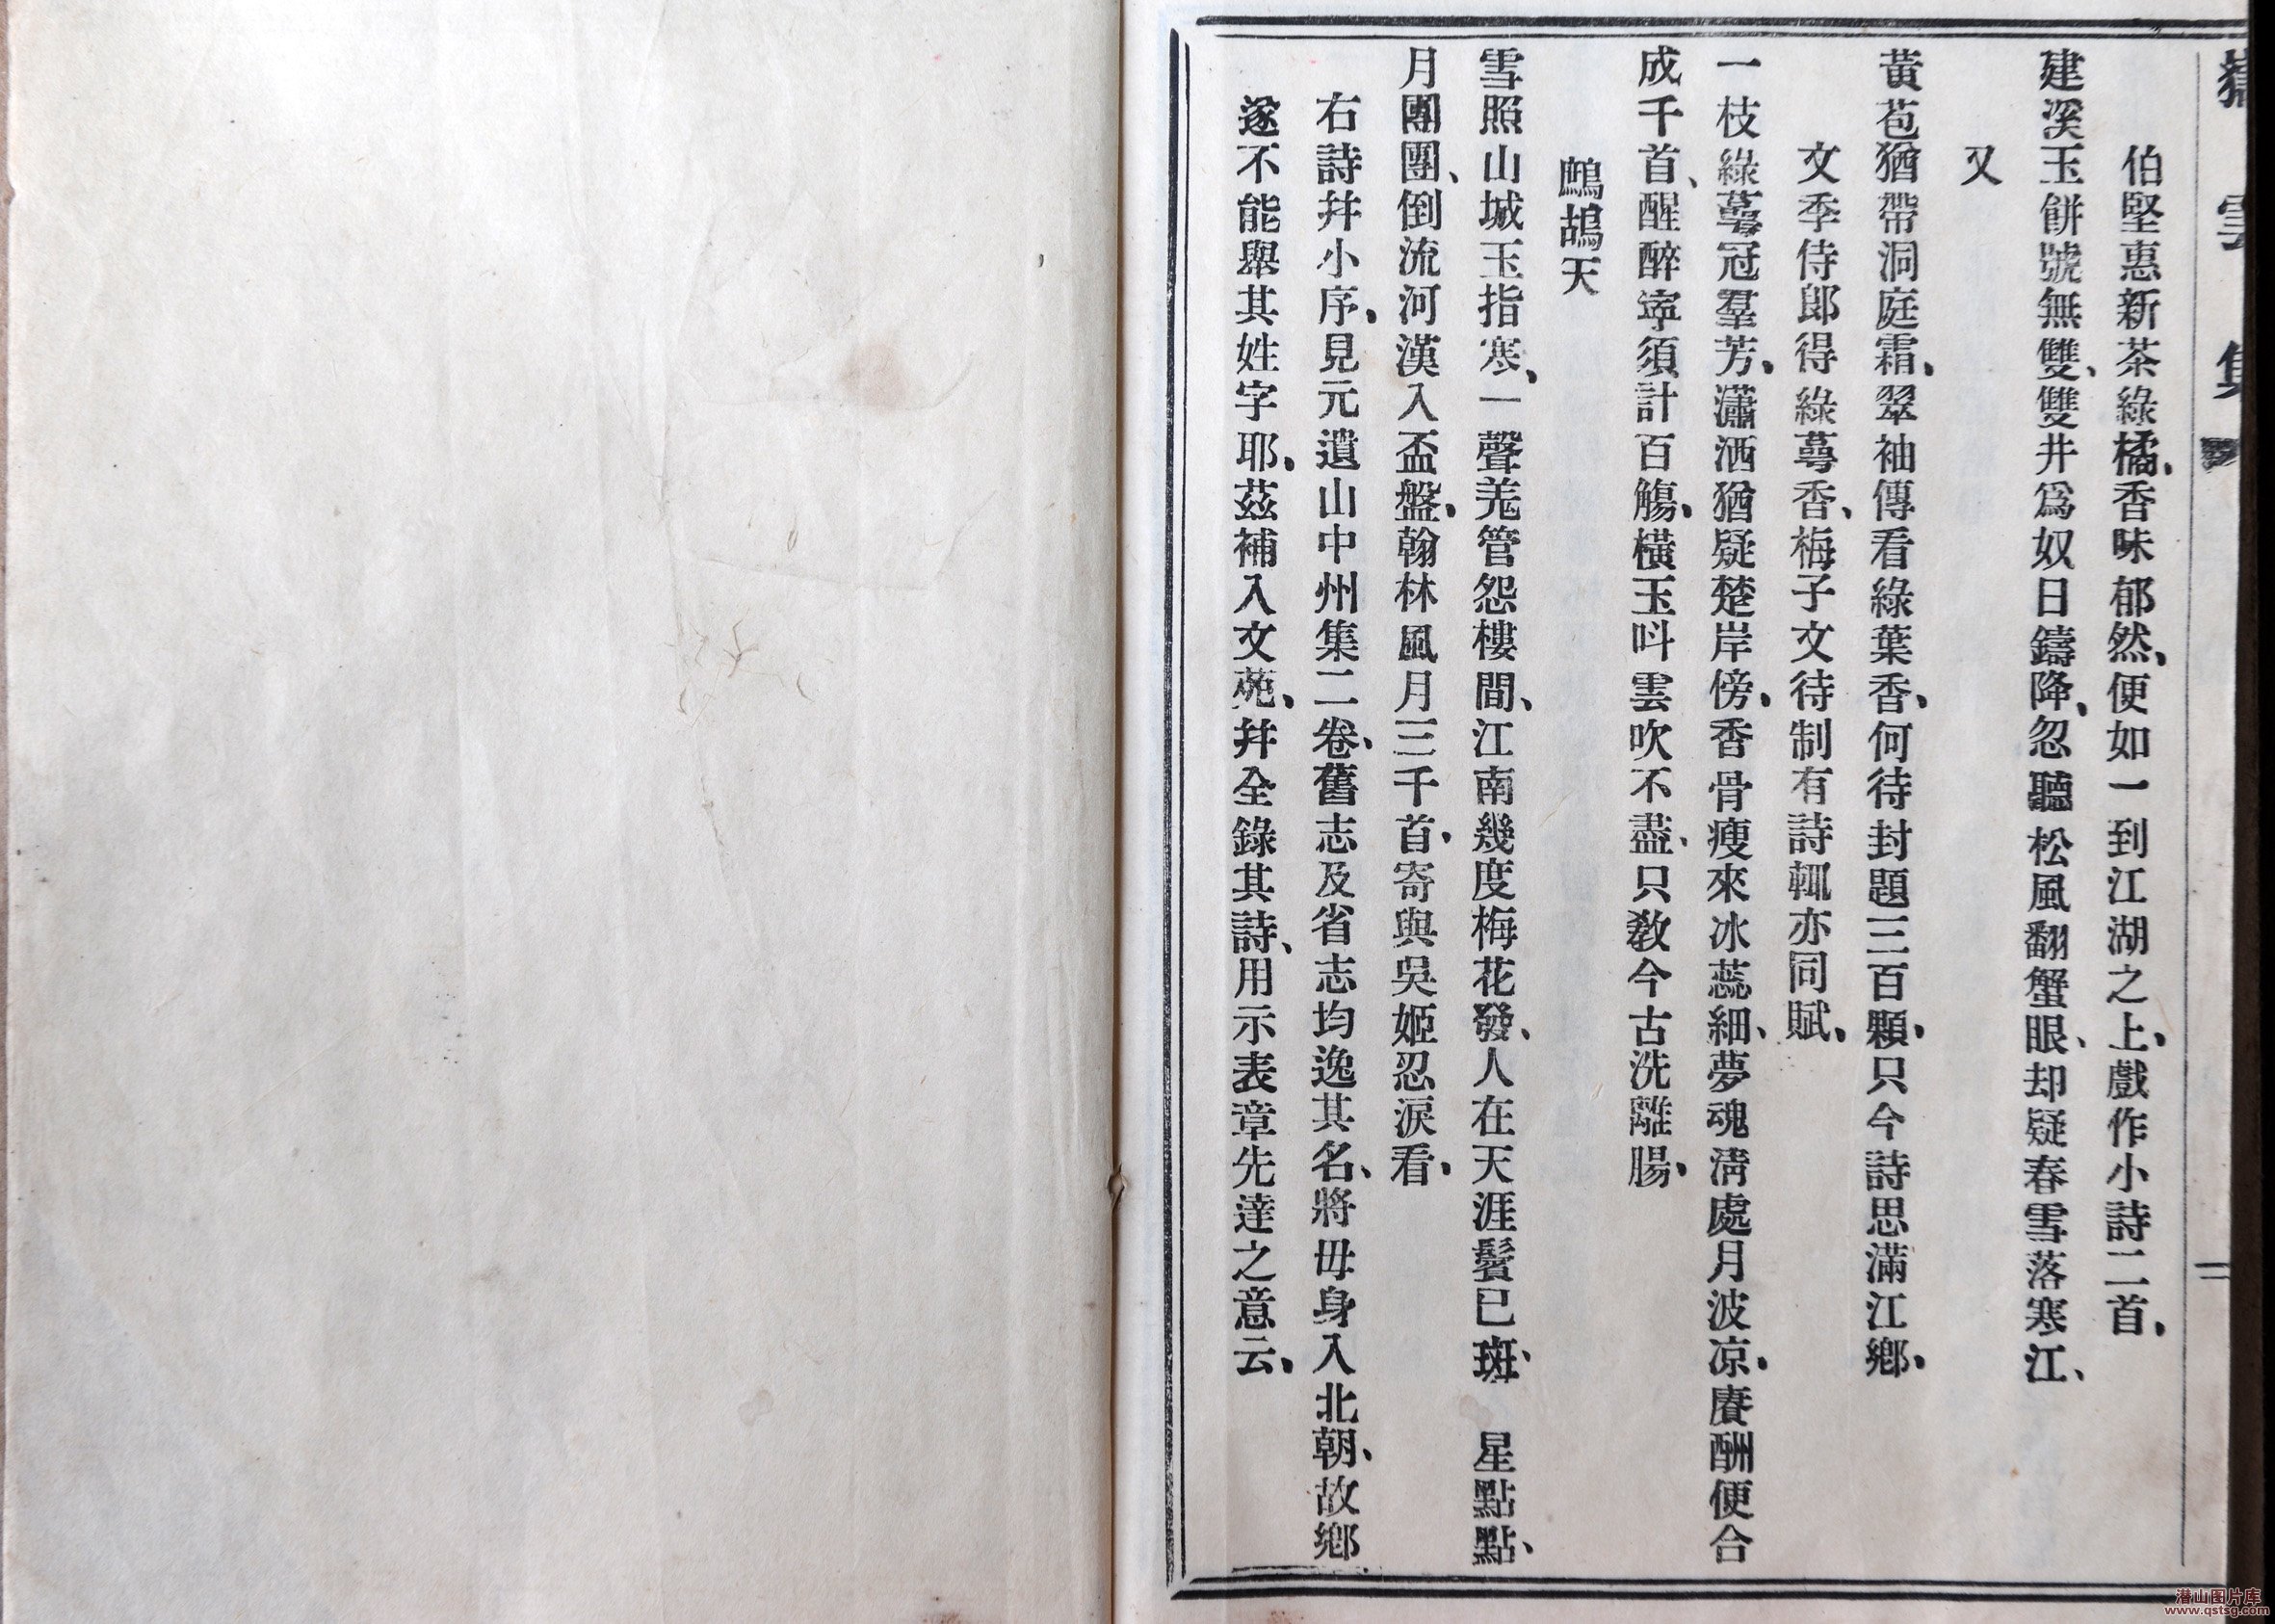 雲集
二
伯堅惠新茶綠橘、香味郁然、便如一到江湖之上、戲作小詩二首、
建溪玉餅號無雙、雙井爲奴日鑄降、忽聽松風翻蟹眼、却疑春雪落寒江、
又
黃苞猶帶洞庭霜、翠袖傳看綠葉香、何待封題三百顆、只今詩思滿江鄉、
文季侍郎得綠萼香、梅子文待制有詩輒亦同賦、
一枝綠萼冠羣芳、瀟洒猶疑楚岸傍、香骨瘦來冰蕊細、夢魂淸處月波凉、賡酬便合
成千首、醒醉寧須計百觴、橫玉叫雲吹不盡、只敎今古洗離腸、
鷓鴣天
雪照山城玉指寒、一聲羗管怨樓間、江南幾度梅花發、人在天涯鬢已斑、　星點點、
月團團、倒流河漢入盃盤、翰林風月三千首、寄與吳姬忍淚看、
右詩幷小序、見元遺山中州集二卷、舊志及省志均逸其名、將毋身入北朝、故鄉
遂不能舉其姓字耶、茲補入文苑、幷全錄其詩、用示表章先達之意云、
潜山图片库
www.qstsg.com